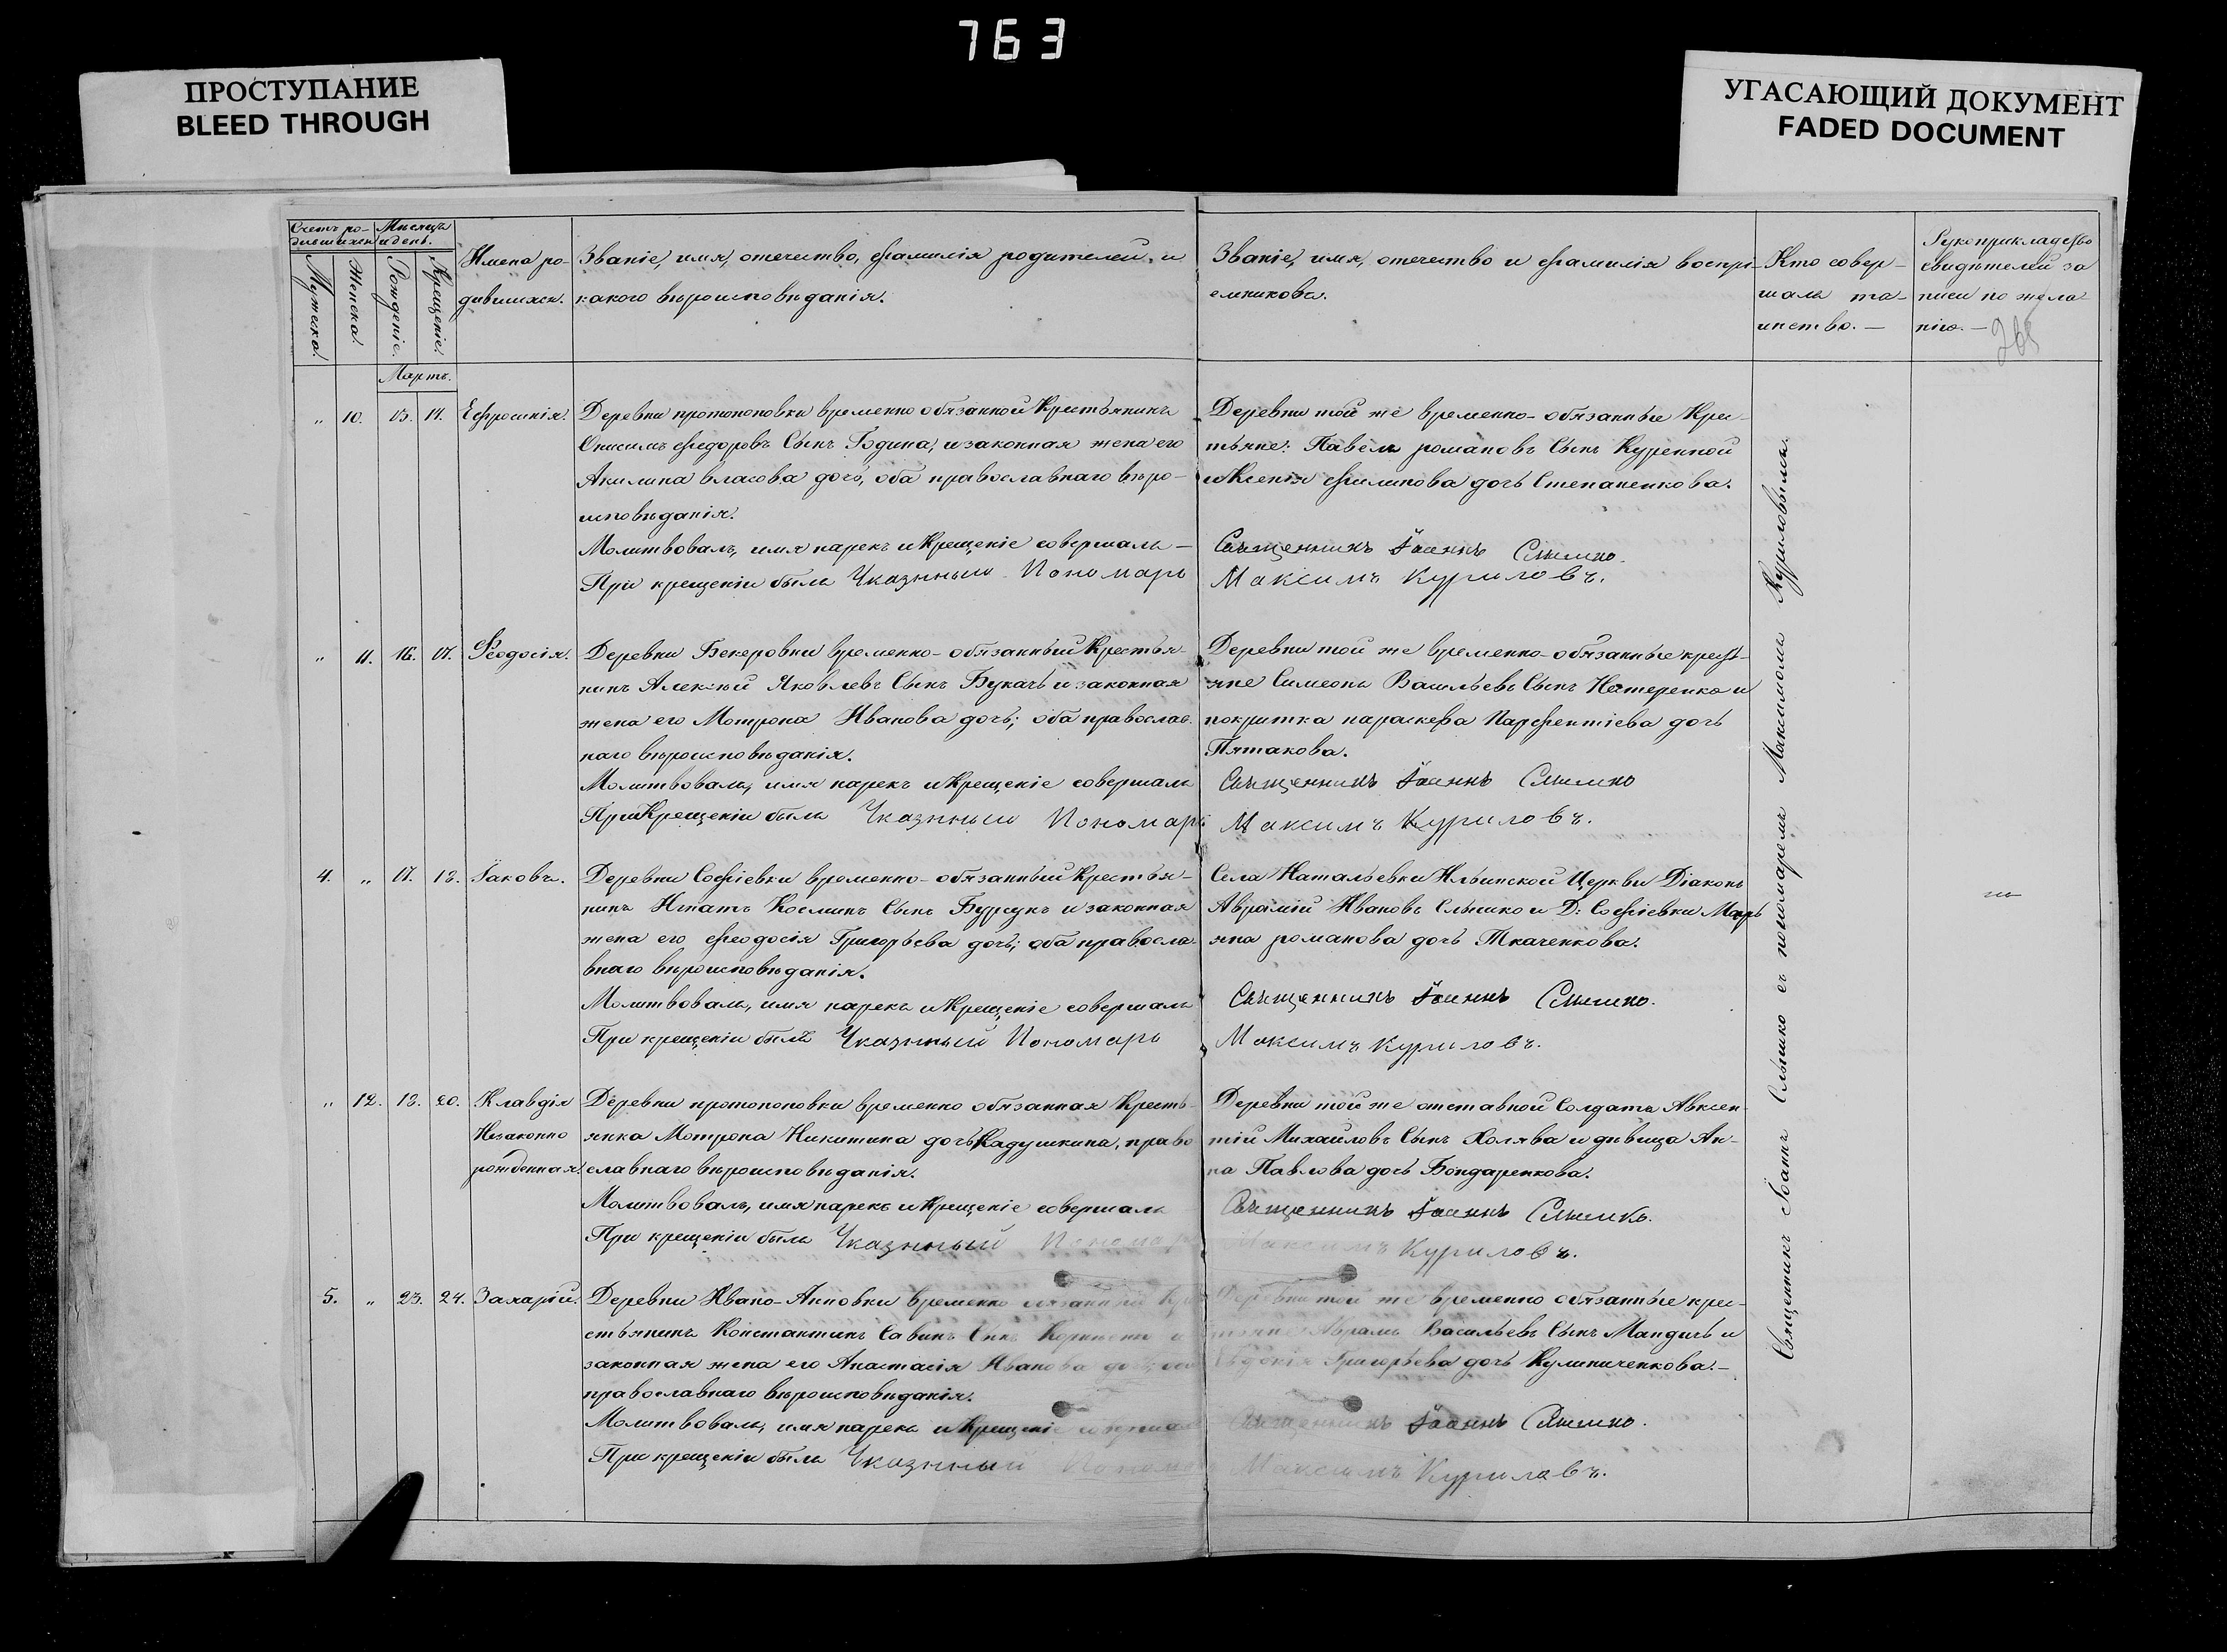 763
ПРОСТУПАНИЕ
BLEED THROUGH
УГАСАЮЩИЙ ДОКУМЕНТ
FADED DOCUMENT
Счетъ ро-
дившихся
Мѣсяцъ
и день.
Мужска.
Женска.
Рожденіе.
Крещеніе.
Имена ро-
дившихся.
Званіе, имя, отечество, фамилія родителей, и
какого вѣроисповѣданія.
Званіе, имя, отечество и фамилія воспрі-
емниковъ.
Кто совер-
шалъ та-
инство. —
Рукоприкладство
свидѣтелей за
писи по жела
нію. —
Мартъ.
„ 10. 13. 14. Ефросинія.
Деревни протопоповки временно обязанной Крестьянинъ
Онисимъ Федоровъ Сынъ Година, и законная жена его
Акилина власова дочь, оба православнаго вѣро-
исповѣданія.
Молитвовалъ, имя нарекъ и Крещеніе совершалъ —
При крещеніи былъ Указнный Пономарь
Деревни той же временно-обязанные Крес-
тьяне: Павелъ романовъ Сынъ Куренной
и Ксенія филипова дочь Степаненкова.
Священникъ Іоаннъ Слышко.
Максимъ Куриловъ.
„ 11. 16. 17. Феодосія.
Деревни Бекеровки временно-обязанный Крестья-
нинъ Алексѣй Яковлевъ Сынъ Букачъ и законная
жена его Мотрона Иванова дочь; оба православ.
наго вѣроисповѣданія.
Молитвовалъ, имя нарекъ и Крещеніе совершалъ
При Крещеніи былъ Указнный Пономарь
Деревни той же временно-обязанные крест-
яне Симеонъ Васильевъ Сынъ Нетеренко и
покритка параскева Парфентіева дочь
Пятакова.
Священникъ Іоаннъ Слышко
Максимъ Куриловъ.
4. „ 17. 18. Іаковъ.
Деревни Софіевки временно-обязанный Крестья-
нинъ Игнатъ Косминъ Сынъ Бурсукъ и законная
жена его феодосія Григорьева дочь; оба правосла-
внаго вѣроисповѣданія.
Молитвовалъ, имя нарекъ и Крещеніе совершалъ
При крещеніи былъ Указнный Пономарь
Села Натальевки Ильинской Церкви Діаконъ
Аврамій Ивановъ Слышко и Д: Софіевки Марь
яна романова дочь Ткаченкова.
Священникъ Іоаннъ Слышко.
Максимъ Куриловъ.
„ 12. 18. 20. Клавдія
Незаконно
рожденная.
Деревни протопоповки временно обязанная Кресть-
янка Мотрона Никитина дочь Кадушкина, право
славнаго вѣроисповѣданія.
Молитвовалъ, имя нарекъ и Крещеніе совершалъ
При крещеніи былъ Указнный Пономарь
Деревни той же отставной Солдатъ Авксен-
тій Михайловъ Сынъ Холява и дѣвица Ан-
на Павлова дочь Бондаренкова.
Священникъ Іоаннъ Слышко.
Максимъ Куриловъ.
5. „ 23. 24. Захарій.
Деревни Ивано-Анновки временно обязанный Кре
стьянинъ Константинъ Савинъ Сынъ и
законная жена его Анастасія Иванова дочь; оба
православнаго вѣроисповѣданія.
Молитвовалъ, имя нарекъ и Крещеніе совершалъ
При крещеніи былъ Указнный Пономарь
Деревни той же временно обязанные крес-
тьяне Аврамъ Васильевъ Сынъ Мандичъ и
Евдокія Григорьева дочь Кулиниченкова. —
Священникъ Іоаннъ Слышко.
Максимъ Куриловъ.
Священникъ Іоаннъ Слышко съ пономаремъ Максимомъ Куриловымъ.